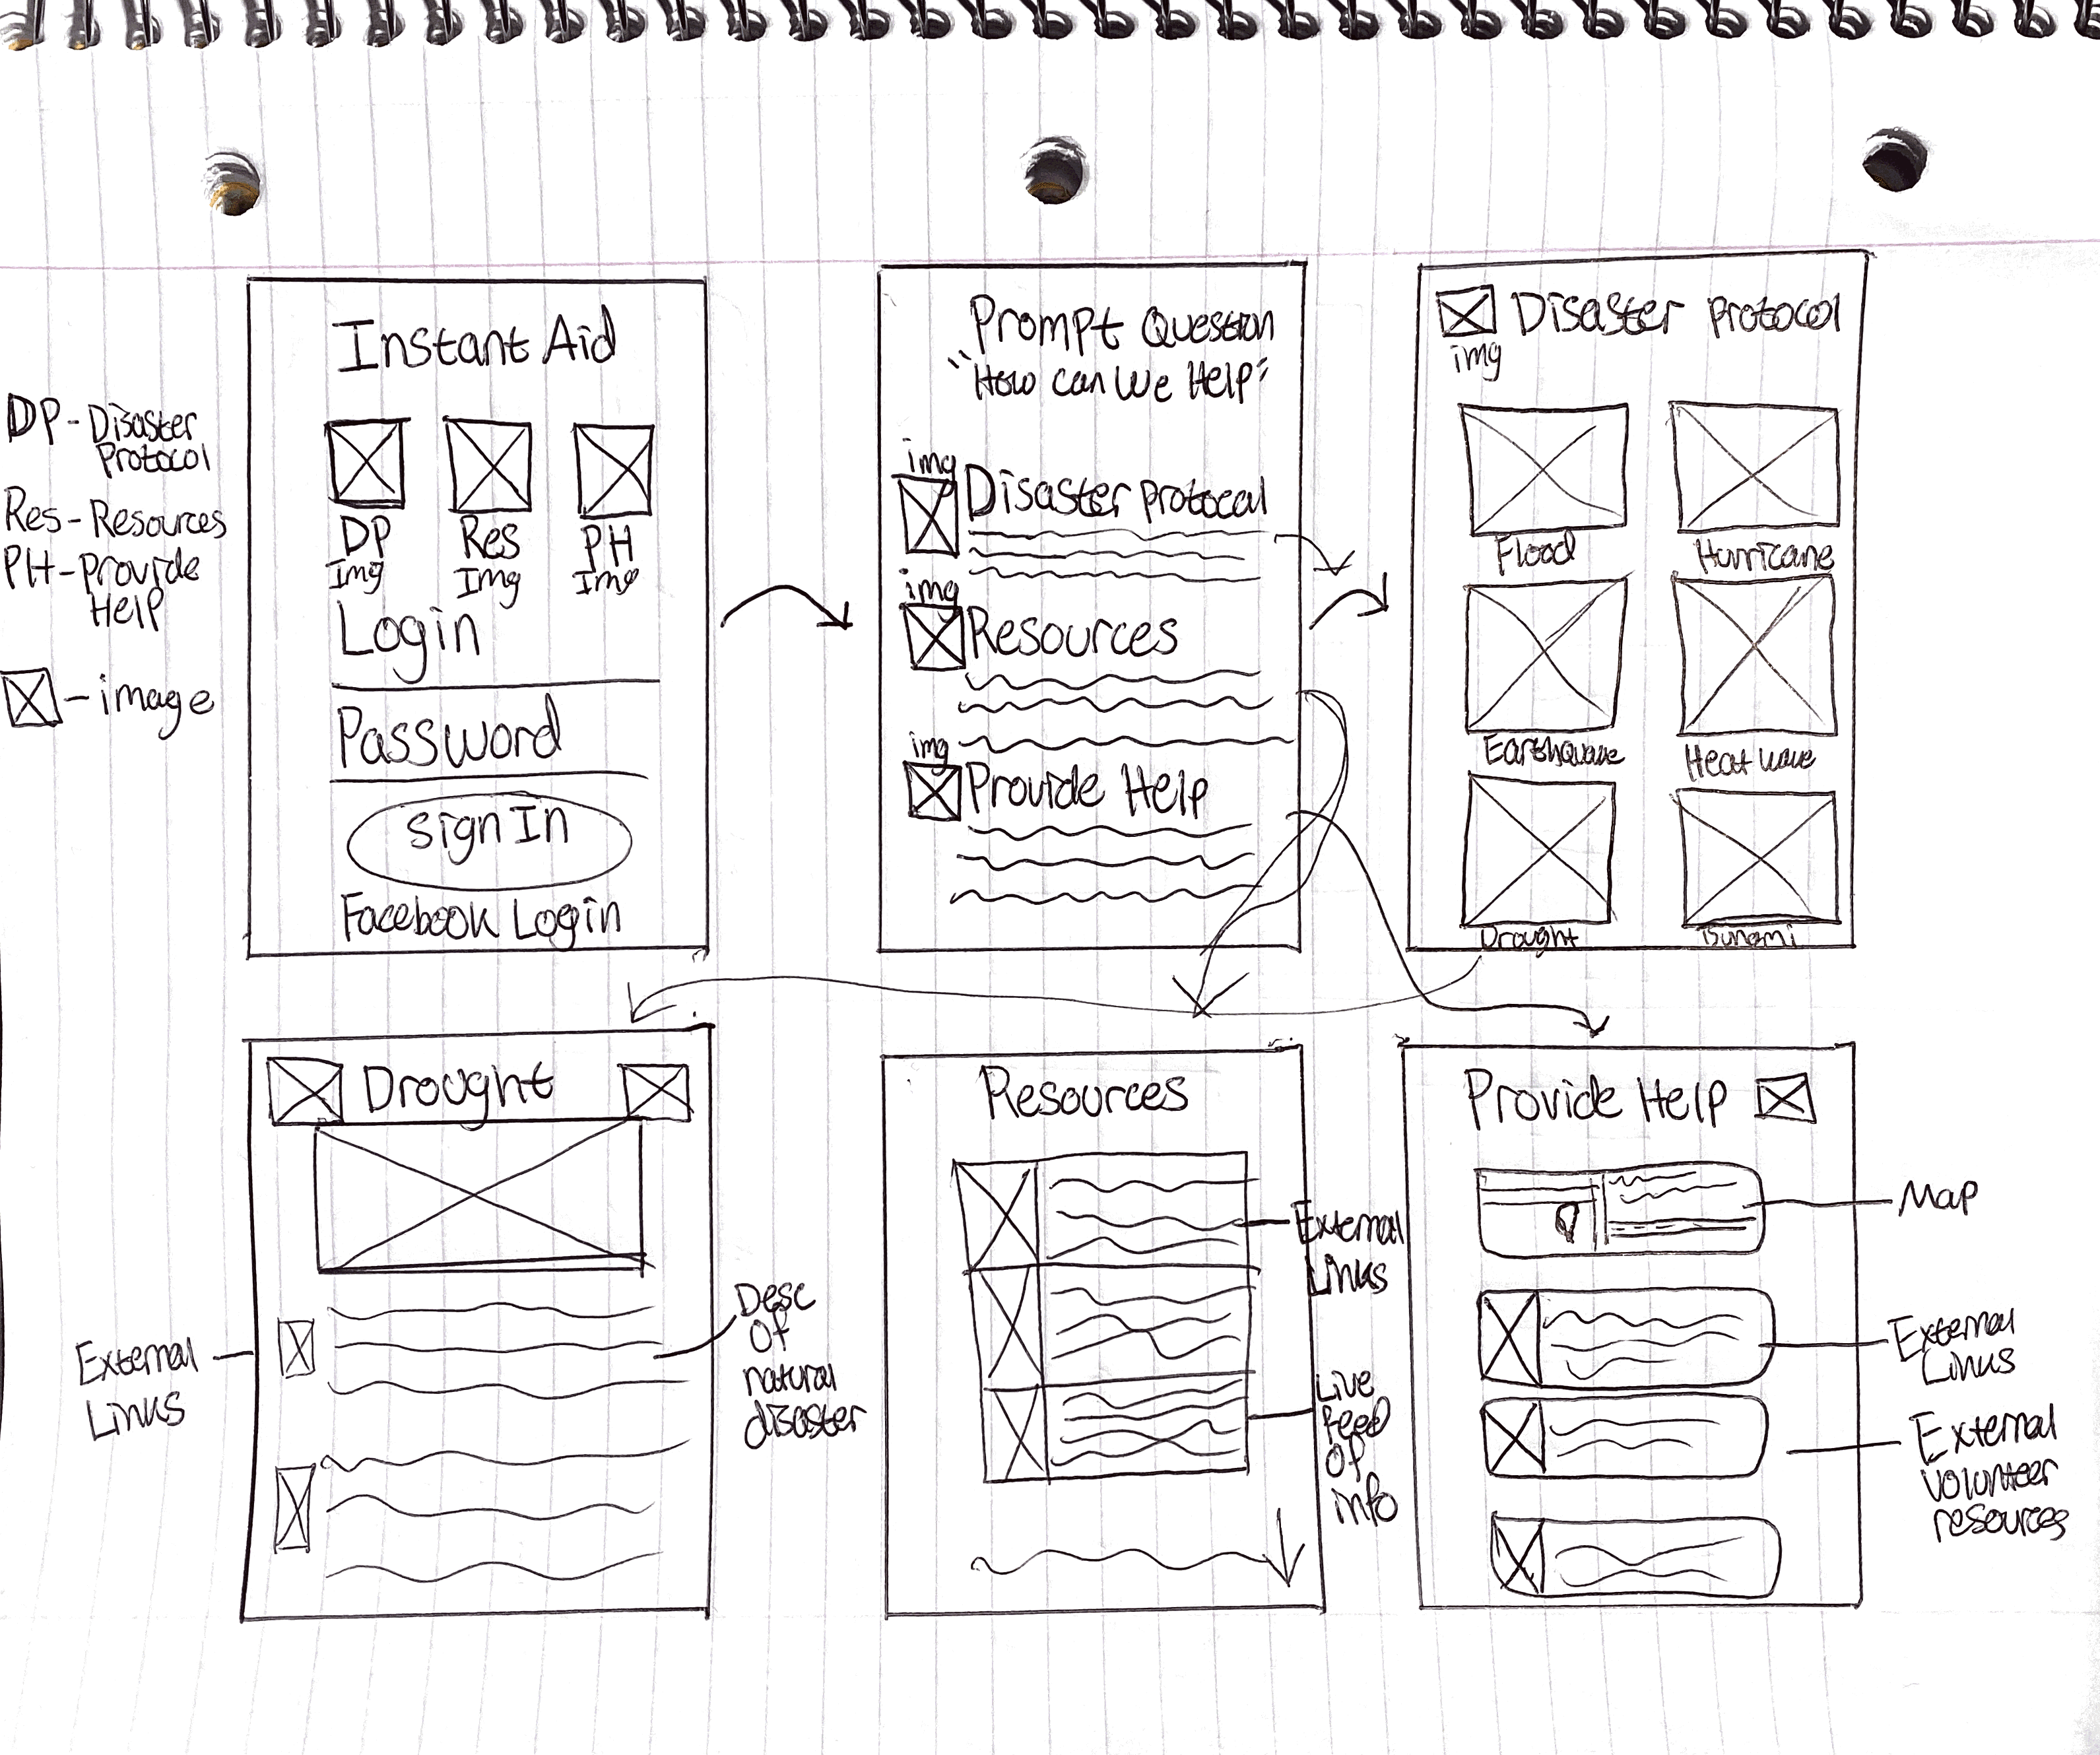 DP - Disaster
Protocol
Res - Resources
PH - Provide
Help
- image
Instant Aid
DP
Img
Res
Img
PH
Img
Login
Password
Sign In
Facebook Login
Prompt Question
"How can We Help"
img
Disaster protocal
img
Resources
img
Provide Help
Disaster protocol
img
Flood
Hurricane
Earthquake
Heat wave
Drought
Tsunami
Drought
External
Links
Desc
Of
natural
disaster
Resources
External
Links
Live
Feed
Of
info
Provide Help
Map
External
Links
External
Volunteer
resources